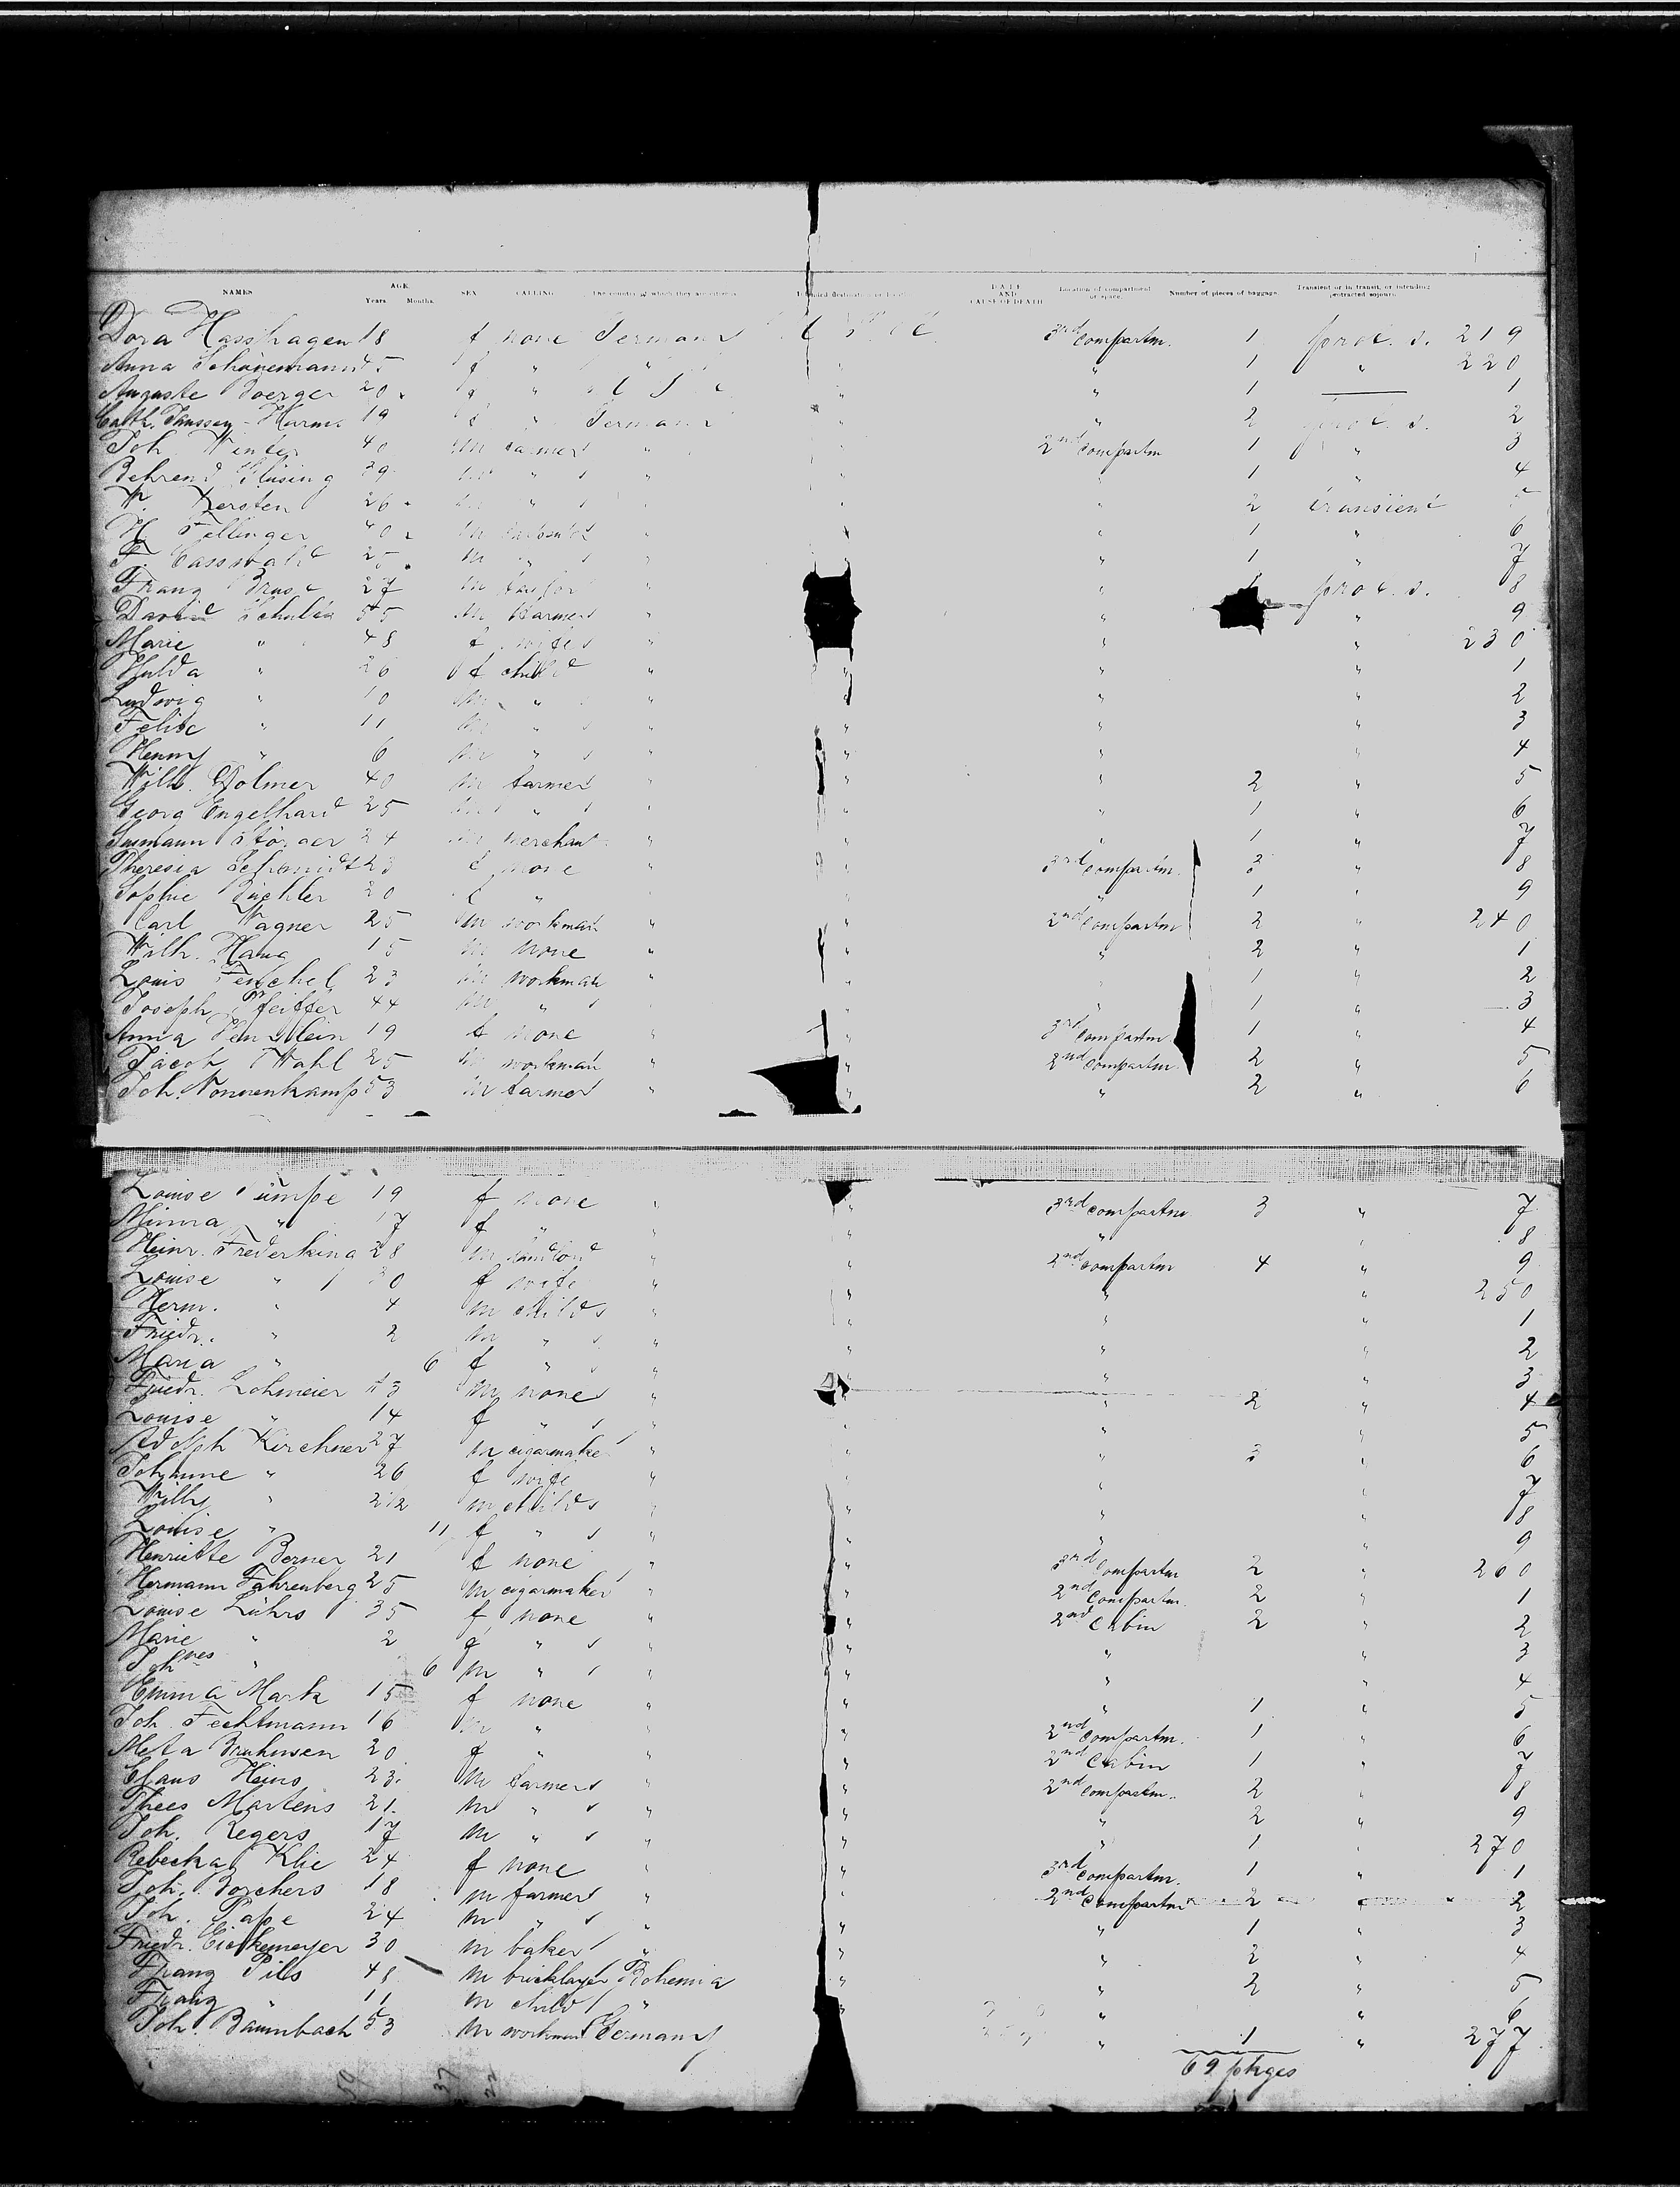 NAMES AGE. Years. Months. SEX CALLING The country of which they are citizens Intended destination or location DATE AND CAUSE OF DEATH Location of compartment or space. Number of pieces of baggage Transient or in transit, or intending protracted sojourn.
Dora Hasshagen 18 f none Germany 3rd compartm. 1 prot. s. 219
Anna Schönemann 45 f " " " 1 " 220
Auguste 20 f " " 1 — 1
Cath. Janssen-Harms 19 f " Germany " 2 prot. s. 2
Joh. Winter 40 m farmer " 2nd compartm 1 " 3
Behrend Glüsing 39 m " " " 1 " 4
W. Kersten 26 m " " " 2 transient 5
H. Fellinger 40 m " " 1 " 6
F. 25 m " " " 1 " 7
Franz 27 m " " prot. s. 8
David 55 m farmer " " " 9
Marie " 48 f wife " " " 230
Hulda " 26 f child " " " " 1
Ludwig " 10 m " " " " " 2
Felix " 11 m " " " " " 3
Henry " 6 m " " " " " 4
Wilh. Dolmer 40 m farmer " " " 2 " 5
Georg Engelhard 25 m " " " " 1 " 6
24 m merchant " " " 1 " 7
Theresia Schmidt 23 f none " " 3rd compartm. 3 " 8
Sophie Büchler 20 f " " " " 1 " 9
Carl Wagner 25 m workman " " 2nd compartm 2 " 240
Wilh. Haug 15 m none " " " 2 " 1
Louis Fenchel 23 m workman " " " 1 " 2
Joseph Pfeiffer 44 m " " " " 1 " 3
Anna 19 f none " " 3rd compartm 1 " 4
Jacob Wahl 25 m workman " " 2nd compartm. 2 " 5
Joh. Nonnenkamp 53 m farmer " " " 2 " 6
Louise Pümpe 19 f none " " 3rd compartm. 3 " 7
Minna " 17 f " " " " " 8
Heinr. Frederking 28 m " " 2nd compartm 4 " 9
Louise " 30 f wife " " " " 250
Herm. " 4 m child " " " " 1
Friedr. " 2 m " " " " " 2
Maria " 6 f " " " " " 3
Friedr. Lohmeier 43 m none " " " 2 " 4
Louise " 14 f " " " " " 5
Adolph Kirchner 27 m cigarmaker " " " 3 " 6
Johanne " 26 f wife " " " " 7
Willy " 2 1/2 m child " " " " 8
Louise " 11 f " " " " " 9
Henriette Berner 21 f none " " 3rd Compartm 2 " 260
Hermann Fahrenberg 25 m cigarmaker " " 2nd Compartm. 2 " 1
Louise Lührs 35 f none " " 2nd Cabin 2 " 2
Marie " 2 f " " " " " 3
Johnes " 6 m " " " " " 4
Emma Mark 15 f none " " " 1 " 5
Joh. Fechtmann 16 m " " " 2nd Compartm. 1 " 6
Meta 20 f " " " 2nd Cabin 1 " 7
Claus Heins 23 m farmer " " 2nd compartm. 2 " 8
Thees Martens 21 m " " " " 2 " 9
Joh. Regers 17 m " " " " 1 " 270
Rebecka Klie 24 f none " " 3rd compartm. 1 " 1
Joh. Borchers 18 m farmer " " 2nd Compartm 2 " 2
Joh. Pape 24 m " " " " 1 " 3
Friedr. Eickemeyer 30 m baker " " " 2 " 4
Franz Pills 48 m bricklayer Bohemia " " 2 " 5
Franz " 11 m child " " " " 6
Joh. Baumbach 53 m workman Germany " 1 " 277
69 pkges
59 37 22